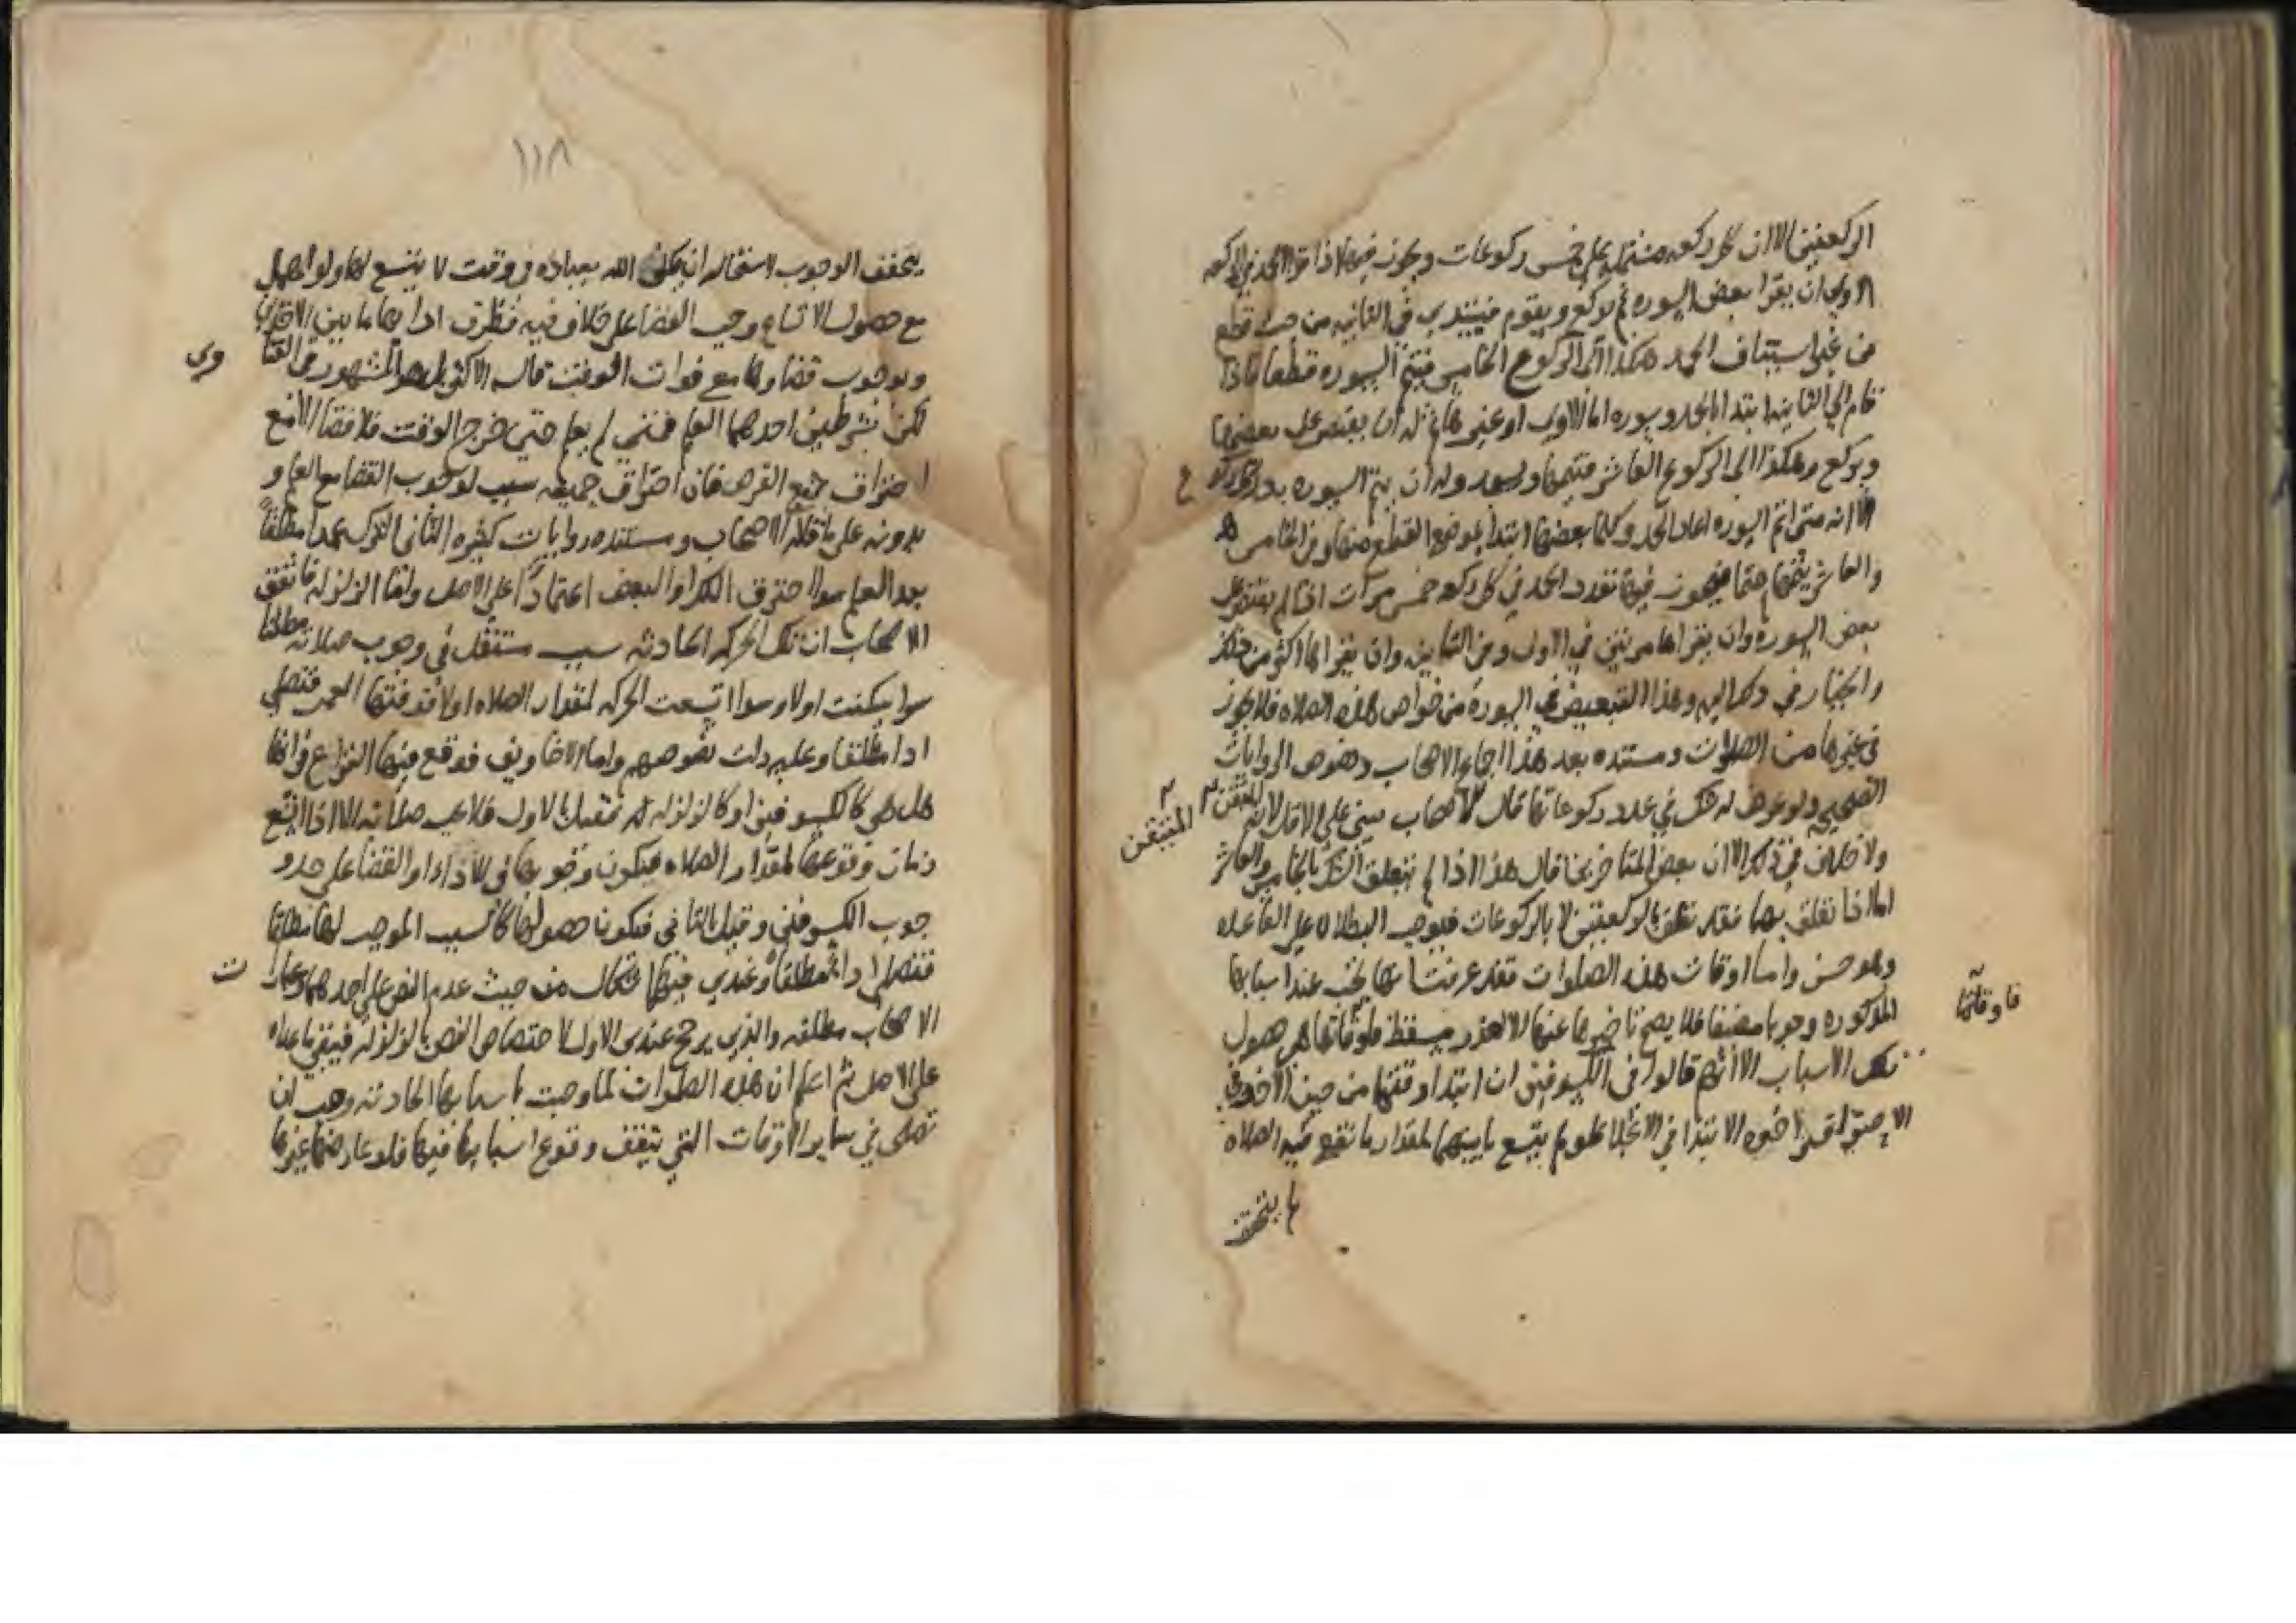 الركعتين الا ان كل ركعه مشتمله على خمس ركوعات ويجوز فيها اذا قرا الحمد في الركعه
الاولى ان يقرا بعض السوره ثم يركع ويقوم فيبتدي في الثانيه من حيث قطع
من غير استيناف الحمد هكذا الى الركوع الخامس فيتم السوره قطعا فاذا
قام الى الثانيه ابتدا بالحمد وسوره اما الاولى او غيرها وله ان يقتصر على بعضها
ويركع وهكذا الى الركوع العاشر فيتمها ويسجد وله ان يتم السوره بعد كل ركوع
الا انه متى اتم السوره اعاد الحمد وكلما بعضها ابتدا بموضع القطع منها وفي الخامس
والعاشر يتمها حتما فيجوز فيها تعدد الحمد في كل ركعه خمس مرات اذا لم يقتصر على
بعض السوره وان يقراها مرتين في الاولى وفي الثانيه وان يقراها اكثر من ذلك
والخيار في ذلك اليه وهذا التبعيض في السوره من خواص هذه الصلاه فلا يجوز
في غيرها من الصلوات ومستنده بعد هذا اجماع الاصحاب ونصوص الروايات
الصحيحه ولو عرض له شك في عدد ركوعاتها قال الاصحاب يبني على الاقل لانه المتيقن
المتيقن
ولا خلاف في ذلك الا ان بعض المتاخرين قال هذا اذا لم يتعلق الشك بالخامس والعاشر
اما اذا تعلق بهما فقد تعلق بالركعتين لا بالركوعات فيوجب البطلان على القاعده
وهو حسن واما اوقات هذه الصلوات فقد عرفت انها تجب عند اسبابها
المذكوره وجوبا مضيقا فلا يصح تاخيرها عنها الا لعذر مسقط فاوقاتها هي حصول
فاوقاتها
تلك الاسباب الا انهم قالوا في الكسوفين ان ابتدا وقتها من حين الاخذ في
الاحتراق واخره الابتدا في الانجلا فلو لم يتسع ما بينهما لمقدار ما تقع فيه الصلاه
لم يتحقق
١١٨
يتحقق الوجوب لاستحاله ان يكلف الله بعباده في وقت لا يتسع لها ولو اهمل
مع حصول الاتساع وجب القضا على خلاف فيه فظرف ادايها ما بين
وبوجوب قضاوها مع فوات الوقت قال الاكثر بل هو المشهور في الفتا
وى
لكن بشرطين احدهما العلم فمتى لم يعلم حتى خرج الوقت فلا قضا الا مع
احتراق جميع القرص فان احتراق جميعه سبب لوجوب القضا مع العلم و
بدونه على ما قاله الاصحاب ومستنده روايات كثيره الثاني الترك عمدا مطلقا
بعد العلم سوا احترق الكل او البعض اعتمادا على الاصل واما الزلزله فاتفق
الاصحاب ان تلك الحركه الحادثه سبب مستقل في وجوب صلاته مطلقا
سوا سكنت اولا وسوا اتسعت الحركه لمقدار الصلاه اولا فوقتها العمر فتصلي
ادا مطلقا وعليه دلت نصوصهم واما الاخاويف فوقع فيها النزاع في انها
هل هي كالكسوفين او كالزلزله فقيل بالاول فلا تجب صلاته الا اذا اتسع
زمان وقوعها لمقدار الصلاه فيكون وجوبها في الاداء او القضا على حد و
جوب الكسوفين وقيل بالثاني فيكون حصولها كالسبب الموجب لها مطلقا
فتصلي ادا مطلقا وعندي فيها اشكال من حيث عدم النص على احدهما وعبارا
ت
الاصحاب مطلقه والذي يرجح عندي الاول لاختصاص النص بالزلزله فيبقى ما عداه
على الاصل ثم اعلم ان هذه الصلوات لما وجبت باسبابها الحادثه وجب ان
تصلى في ساير الاوقات التي يتفق وقوع اسبابها فيها فلو عارضها غيرها